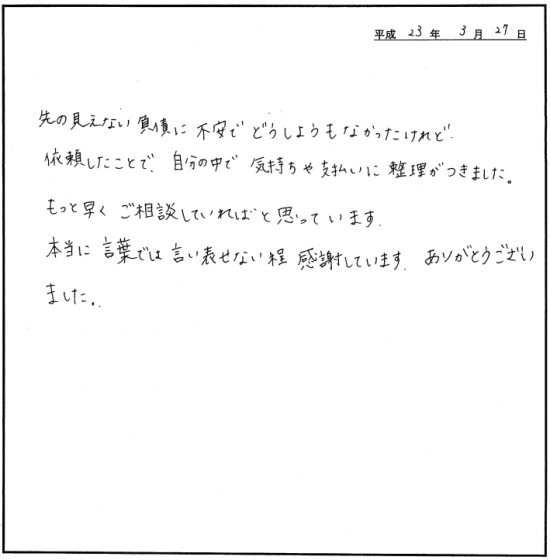 平成 23 年 3 月 27 日
先の見えない負債に不安でどうしようもなかったけれど.
依頼したことで、自分の中で気持ちや支払いに整理がつきました。
もっと早くご相談していればと思っています.
本当に言葉では言い表せない程感謝しています. ありがとうござい
ました.